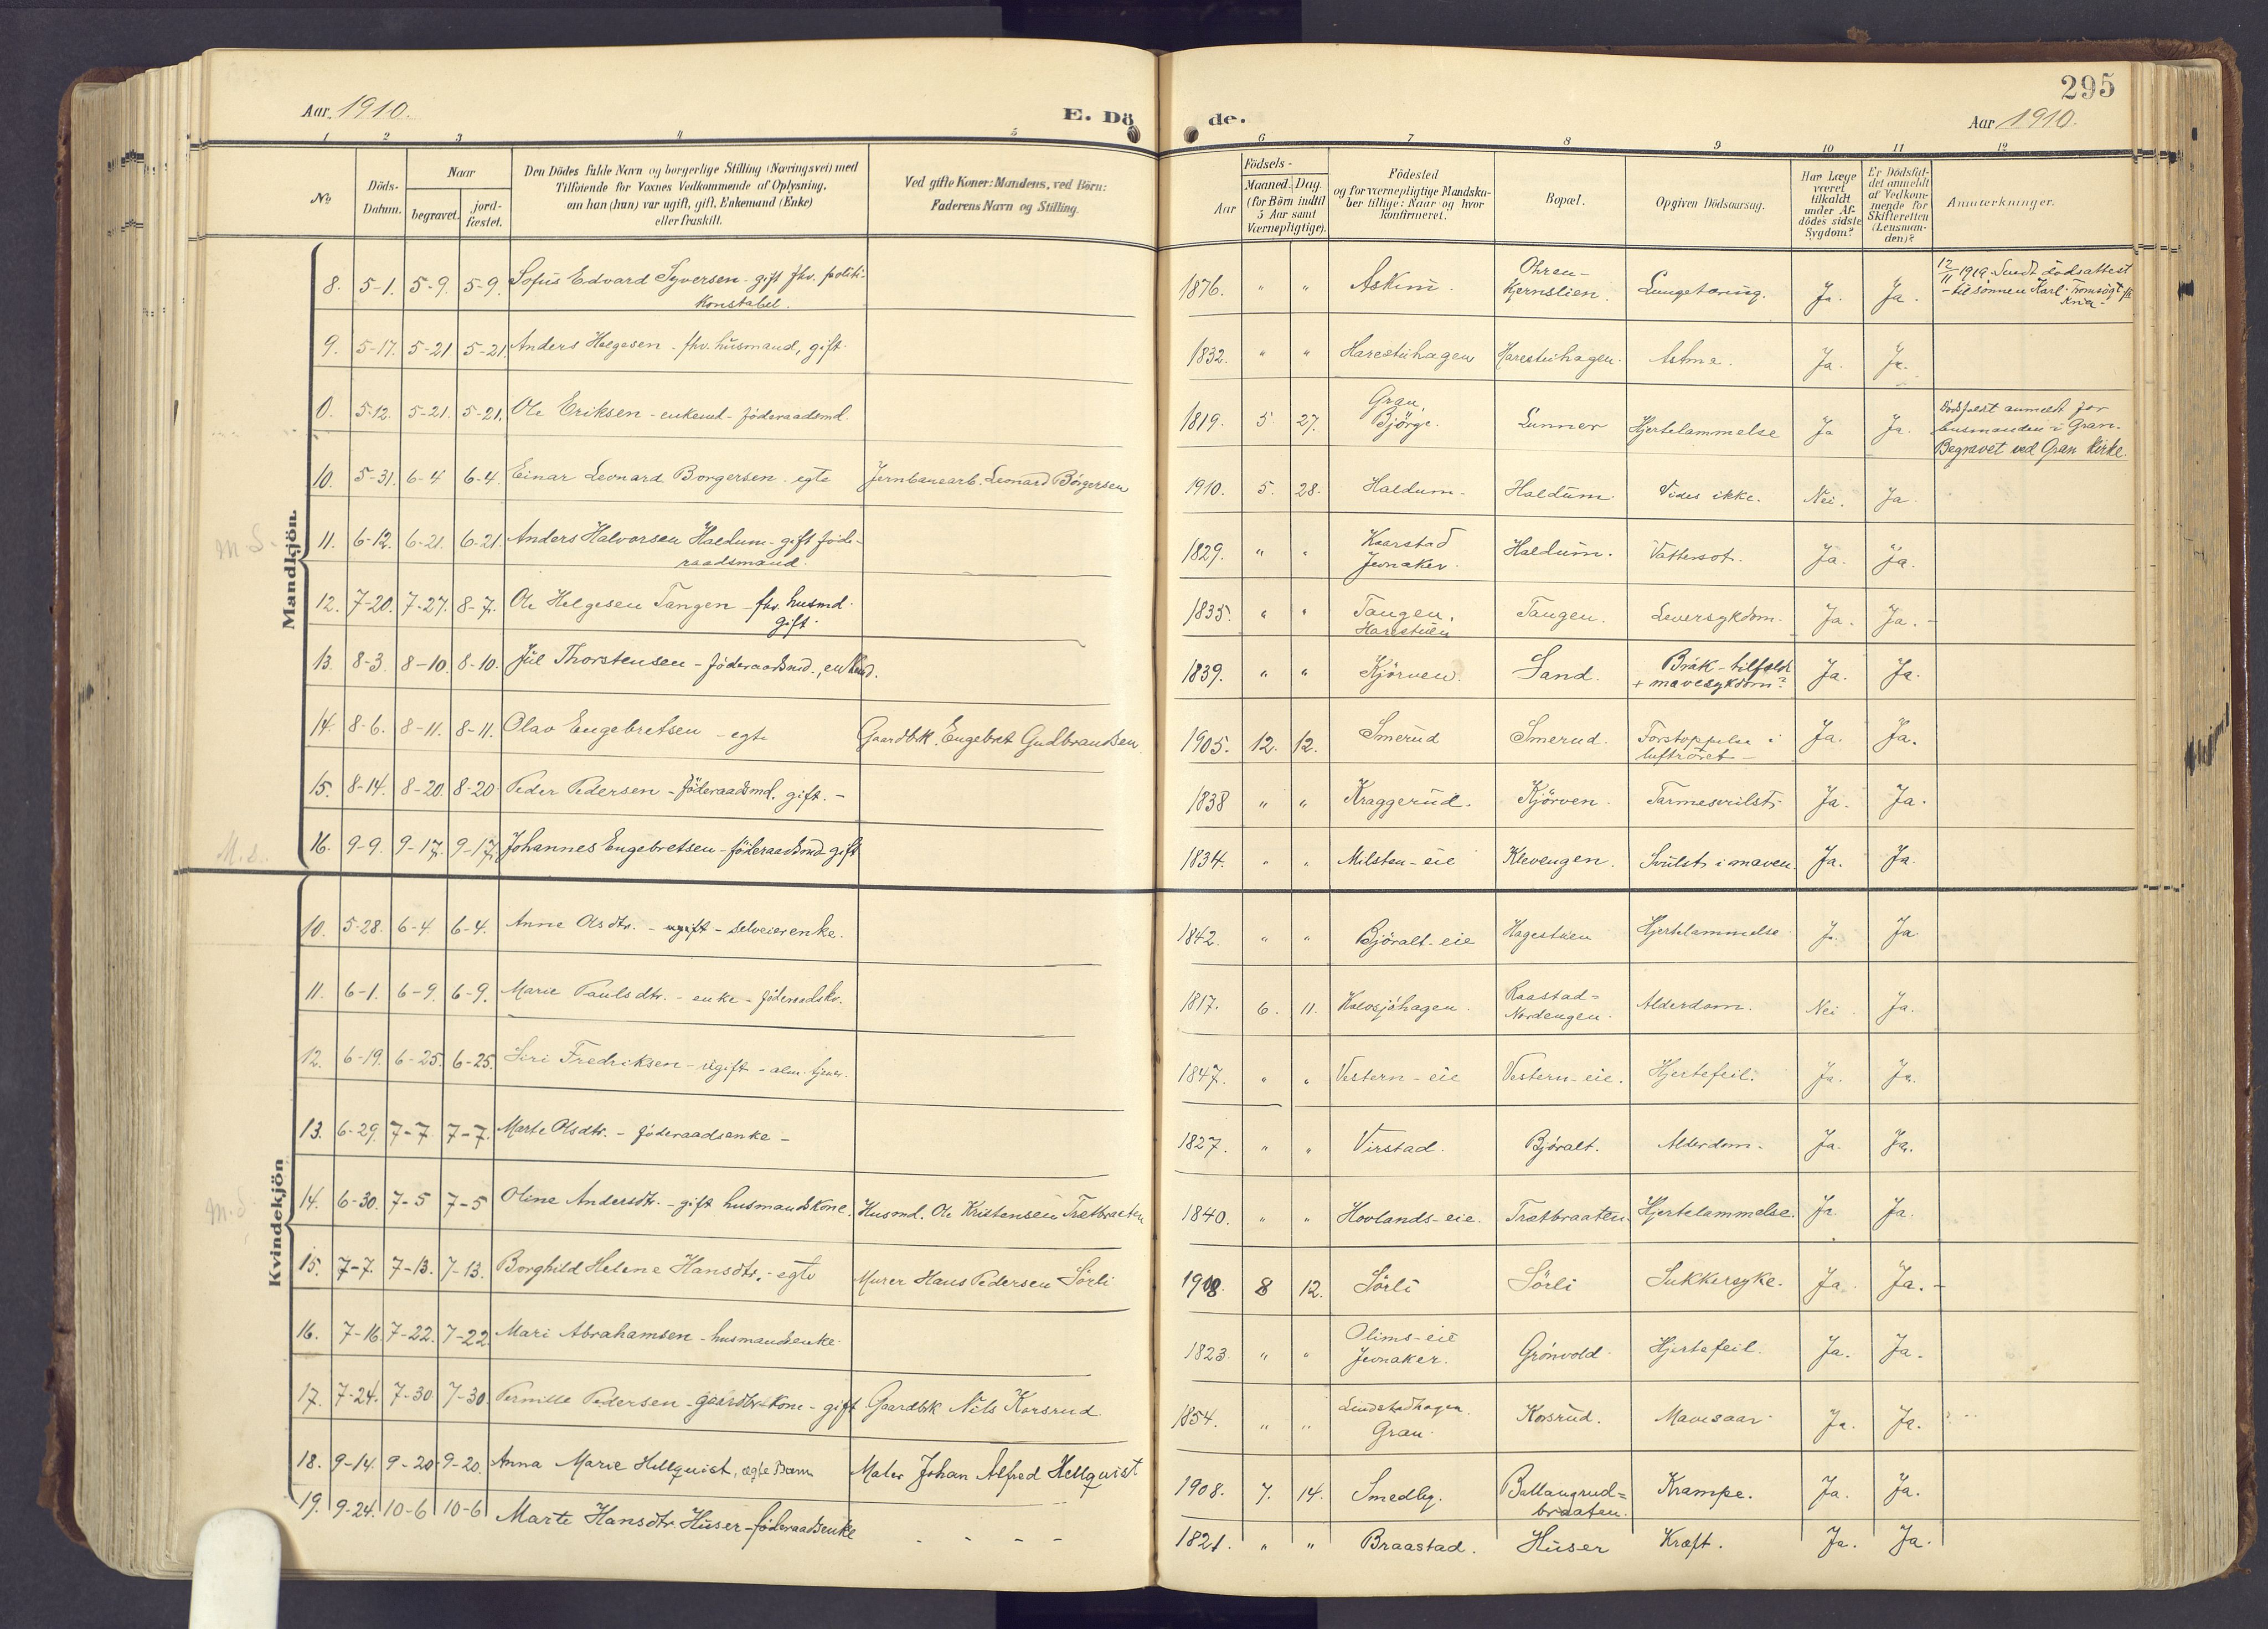 295
Aar 1910.
E. Dö
de.
Aar 1910.
1 2 3 4 5 6 7 8 9 10 11 12
No
Döds-Datum.
Naar
begravet.
jord-fæstet.
Den Dödes fulde Navn og borgerlige Stilling (Næringsvei) med
Tilföiende for Voxnes Vedkommende af Oplysning,
om han (hun) var ugift, gift, Enkemand (Enke)
eller fraskilt.
Ved gifte Koner: Mandens, ved Börn:
Faderens Navn og Stilling.
Födsels-
Aar
Maaned. Dag.
(for Börn indtil
5 Aar samt
Værnepligtige).
Födested
og for værnepligtige Mandska-
ber tillige: Naar og hvor
konfirmeret.
Bopæl.
Opgiven Dödsaarsag.
Har Læge
været
tilkaldt
under Af-
dödes sidste
Sygdom?
Er Dödsfal-
det anmeldt
af Vedkom-
mende for
Skifteretten
(Lensman-
den)?
Anmærkninger.
Mandkjön.
8. 5-1. 5-9. 5-9. Sofus Edvard Syversen - gift fhv. politi-
konstabel. 1876. " " Askim. Ohren-
Kjernslien. Lungetæring. Ja. Ja. 12/11 1919. Sendt dødsattest
- til sønnen Karl
9. 5-17. 5-21 5-21. Anders Helgesen - fhv. husmand, gift. 1832. " " Harestuhagen Harestuhagen. Astma. Ja. Ja.
0. 5-12. 5-21. 5-21. Ole Eriksen - enkemd - föderaadsmd. 1819. 5 27. Gran,
Bjørge. Lunner Hjertelammelse Ja Ja. Dødsfaldt anmeldt for
lensmanden i Gran.
Begravet ved Gran kirke.
10. 5-31. 6-4 6-4. Einar Leonard Borgersen. egte Jernbanearb. Leonard Borgersen 1910. 5. 28. Haldum. Haldum. Vides ikke. Nei. Ja
M. S.
11. 6-12. 6-21. 6-21. Anders Halvorsen Haldum - gift föde-
raadsmand. 1829. " " Kaarstad
Jevnaker. Haldum. Vattersot. Ja. Ja.
12. 7-20. 7-27. 8-7. Ole Helgesen Tangen - fhv. husmd.
gift. 1835. " " Tangen,
Harestuen Tangen. Leversykdom. Ja. Ja.-
13. 8-3. 8-10. 8-10. Jul Thorstensen - föderaadsmd., enkemd. 1839. " " Kjørven. Sand. Bråk-tilfeldt
+ mavesykdom? Ja. Ja.
14. 8-6. 8-11. 8-11. Olav Engebretsen - egte Gaardbk. Engebret Gudbrandsen. 1905. 12. 12. Smerud Smerud. Forstoppelse i
luftröret - Ja. Ja.
15. 8-14. 8-20. 8-20 Peder Pedersen - föderaadsmd. gift. - 1838 " " Kraggerud. Kjørven. Tarmesvulst. Ja. Ja.
M. S.
16. 9-9. 9-17. 9-17. Johannes Engebretsen - föderaadsmd gift 1834. " " Milsten-eie Klevengen. Svulst i maven. Ja. Ja.
Kvindekjön
10. 5-28. 6-4 6-4. Anne Olsdtr. - ugift - selveierenke. 1842. " " Bjøralt-eie Hagestuen Hjertelammelse Ja. Ja
11. 6-1. 6-9. 6-9. Marie Paulsdtr. - enke - föderaadsk. 1817. 6. 11. Kalvsjøhagen. Raastad=
Nordengen. Alderdom. Nei. Ja.
12. 6-19. 6-25. 6-25. Siri Fredriksen - ugift - alm. tjener. 1847. " " Vestern-eie Vestern-eie. Hjertefeil. Ja. Ja.
13. 6-29. 7-7. 7-7. Marte Olsdtr. - föderaadsenke - 1827. " " Virstad. Bjøralt. Alderdom. Ja. Ja.
M. S.
14. 6-30. 7-5 7-5 Oline Andersdtr. - gift husmandskone. Husmd. Ole Kristensen Trætbraaten 1840. " " Hovlands-eie. Trætbraaten. Hjertelammelse. Ja. Ja.
15. 7-7. 7-13. 7-13. Borghild Helene Hansdtr. - egte Murer Hans Pedersen Sörli 1908. 8 12. Sörli Sörli Sukkersyke. Ja. Ja.-
16. 7-16. 7-22. 7-22. Mari Abrahamsen - husmandsenke. 1823. " " Olims-eie
Jevnaker. Grönvold. Hjertefeil. Ja. Ja.
17. 7-24. 7-30 7-30. Pernille Pedersen - gaardbr.kone - gift Gaardbk Nils Korsrud. 1854. " " Lindstadhagen.
Gran. Korsrud. Mavesaar. Ja. Ja.
18. 9-14. 9-20 9-20. Anna Marie Hellquist, egte Barn Maler Johan Alfred Hellquist 1908. 7. 14. Smedbg. Ballangrud=
braaten. Krampe. Ja. Ja.
19. 9-24. 10-6 10-6 Marte Hansdtr. Huser - föderaadsenke - - - - 1821. " " Braastad. Huser Kræft. Ja. Ja.